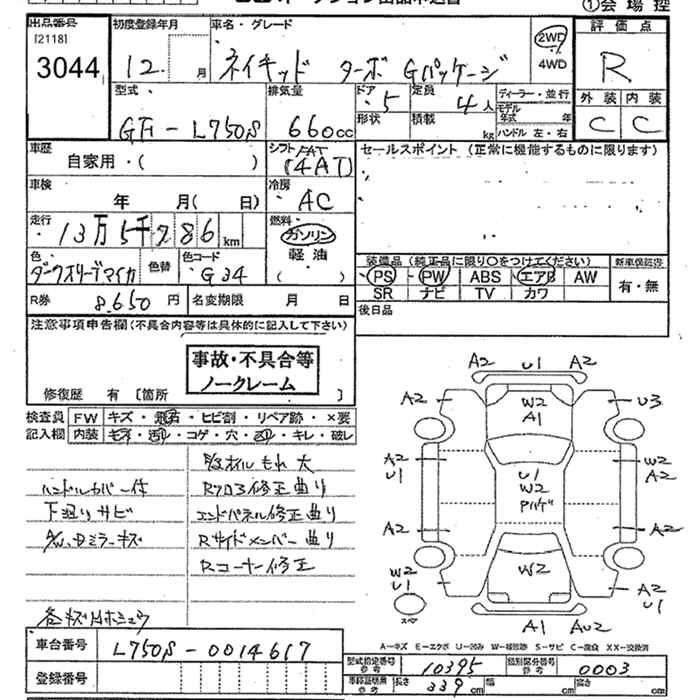 ①会場控
出品番号
初度登録年月
車名・グレード
評価点
[2118]
3044
12 月
ネイキッド ターボ Gパッケージ
2WD
4WD
R
型式
排気量
ドア
定員
ディーラー・並行
外装 内装
GF-L750S
660cc
5
4人
モデル年式 年
C C
形状
積載
kg
ハンドル 左・右
車歴
シフト
FAT
セールスポイント (正常に機能するものに限ります)
自家用・( )
(4AT)
車検
冷房
年 月( 日)
AC
走行
燃料
13万5千786km
ガソリン
軽油
( )
色
色替
色コード
G34
装備品(純正品に限り○をつけてください)
新車保証書
PS PW ABS エアB AW
有・無
SR ナビ TV カワ
R券 8,650円
名変期限 月 日
後日品
注意事項申告欄(不具合内容等は具体的に記入して下さい)
事故・不具合等
ノークレーム
修復歴 有〔箇所 〕
検査員 FW キズ・飛石・ヒビ割・リペア跡・×要
記入欄 内装 キズ・汚れ・コゲ・穴・ヌリ・キレ・破レ
オイルもれ大
ハンドルカバー一体
修正曲り
下廻りサビ
エンドパネル修正曲り
ミラーキズ
Rサイドメンバー曲り
Rコーナー修正
A2 U1 A2
A2 W2 A1 U3
A2 U1
U1 W2
W2 A2
A2
A2
W2 U1
W2
A2 U1
A1
A-キズ E-エクボ U-凹み W-補修跡 S-サビ C-腐食 XX-交換済
車台番号 L750S-0014617
型式指定番号 参考 10395
類別区分番号 参考 0003
登録番号
長さ 339cm
幅 cm
高さ cm